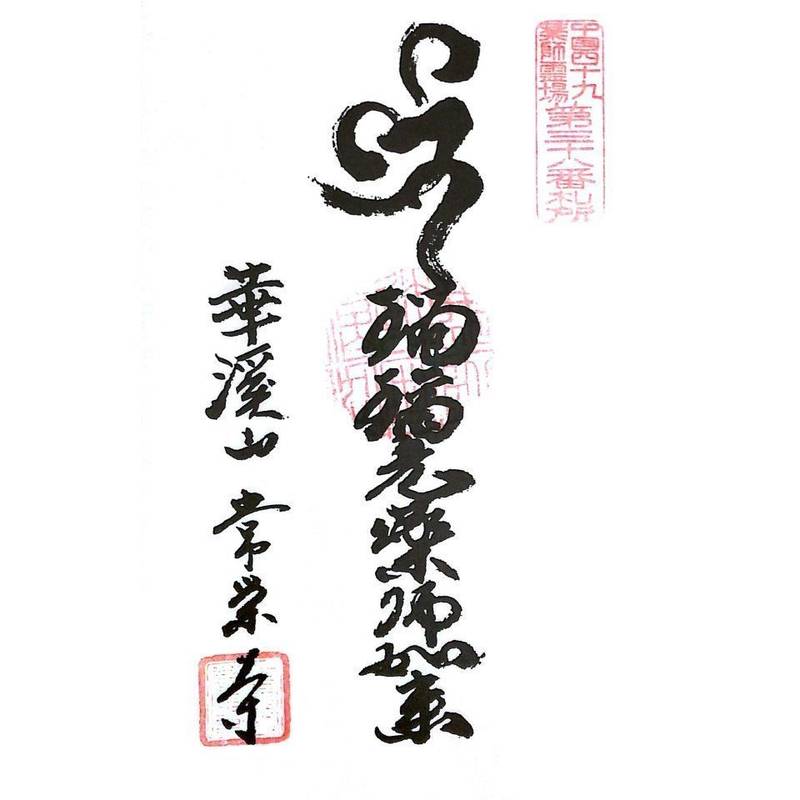 中國四十九
薬師霊場
第三十八番札所
瑠璃光薬師如来
華渓山 常栄寺